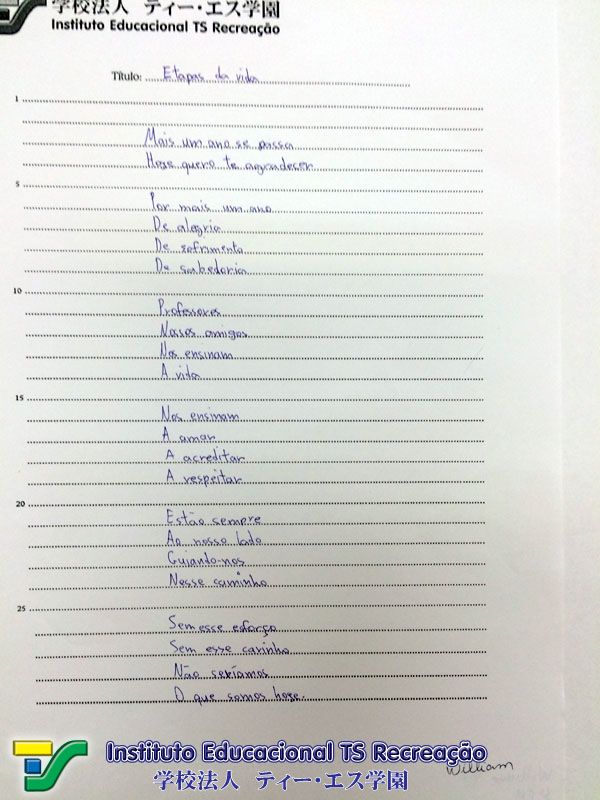 学校法人 ティー・エス学園
Instituto Educacional TS Recreação
Título: Etapas da vida
1
Mais um ano se passa
Hoze quero te agradecer
5
Por mais um ano
De alegria
De sofrimento
De sabedoria
10
Professores
Nossos amigos
Nos ensinam
A vida
15
Nos ensinam
A amar
A acreditar
A respeitar
20
Estão sempre
Ao nosso lado
Guiando-nos
Nesse caminho
25
Sem esse esforço
Sem esse carinho
Não seríamos
O que somos hoze.
William
Instituto Educacional TS Recreação
学校法人 ティー・エス学園